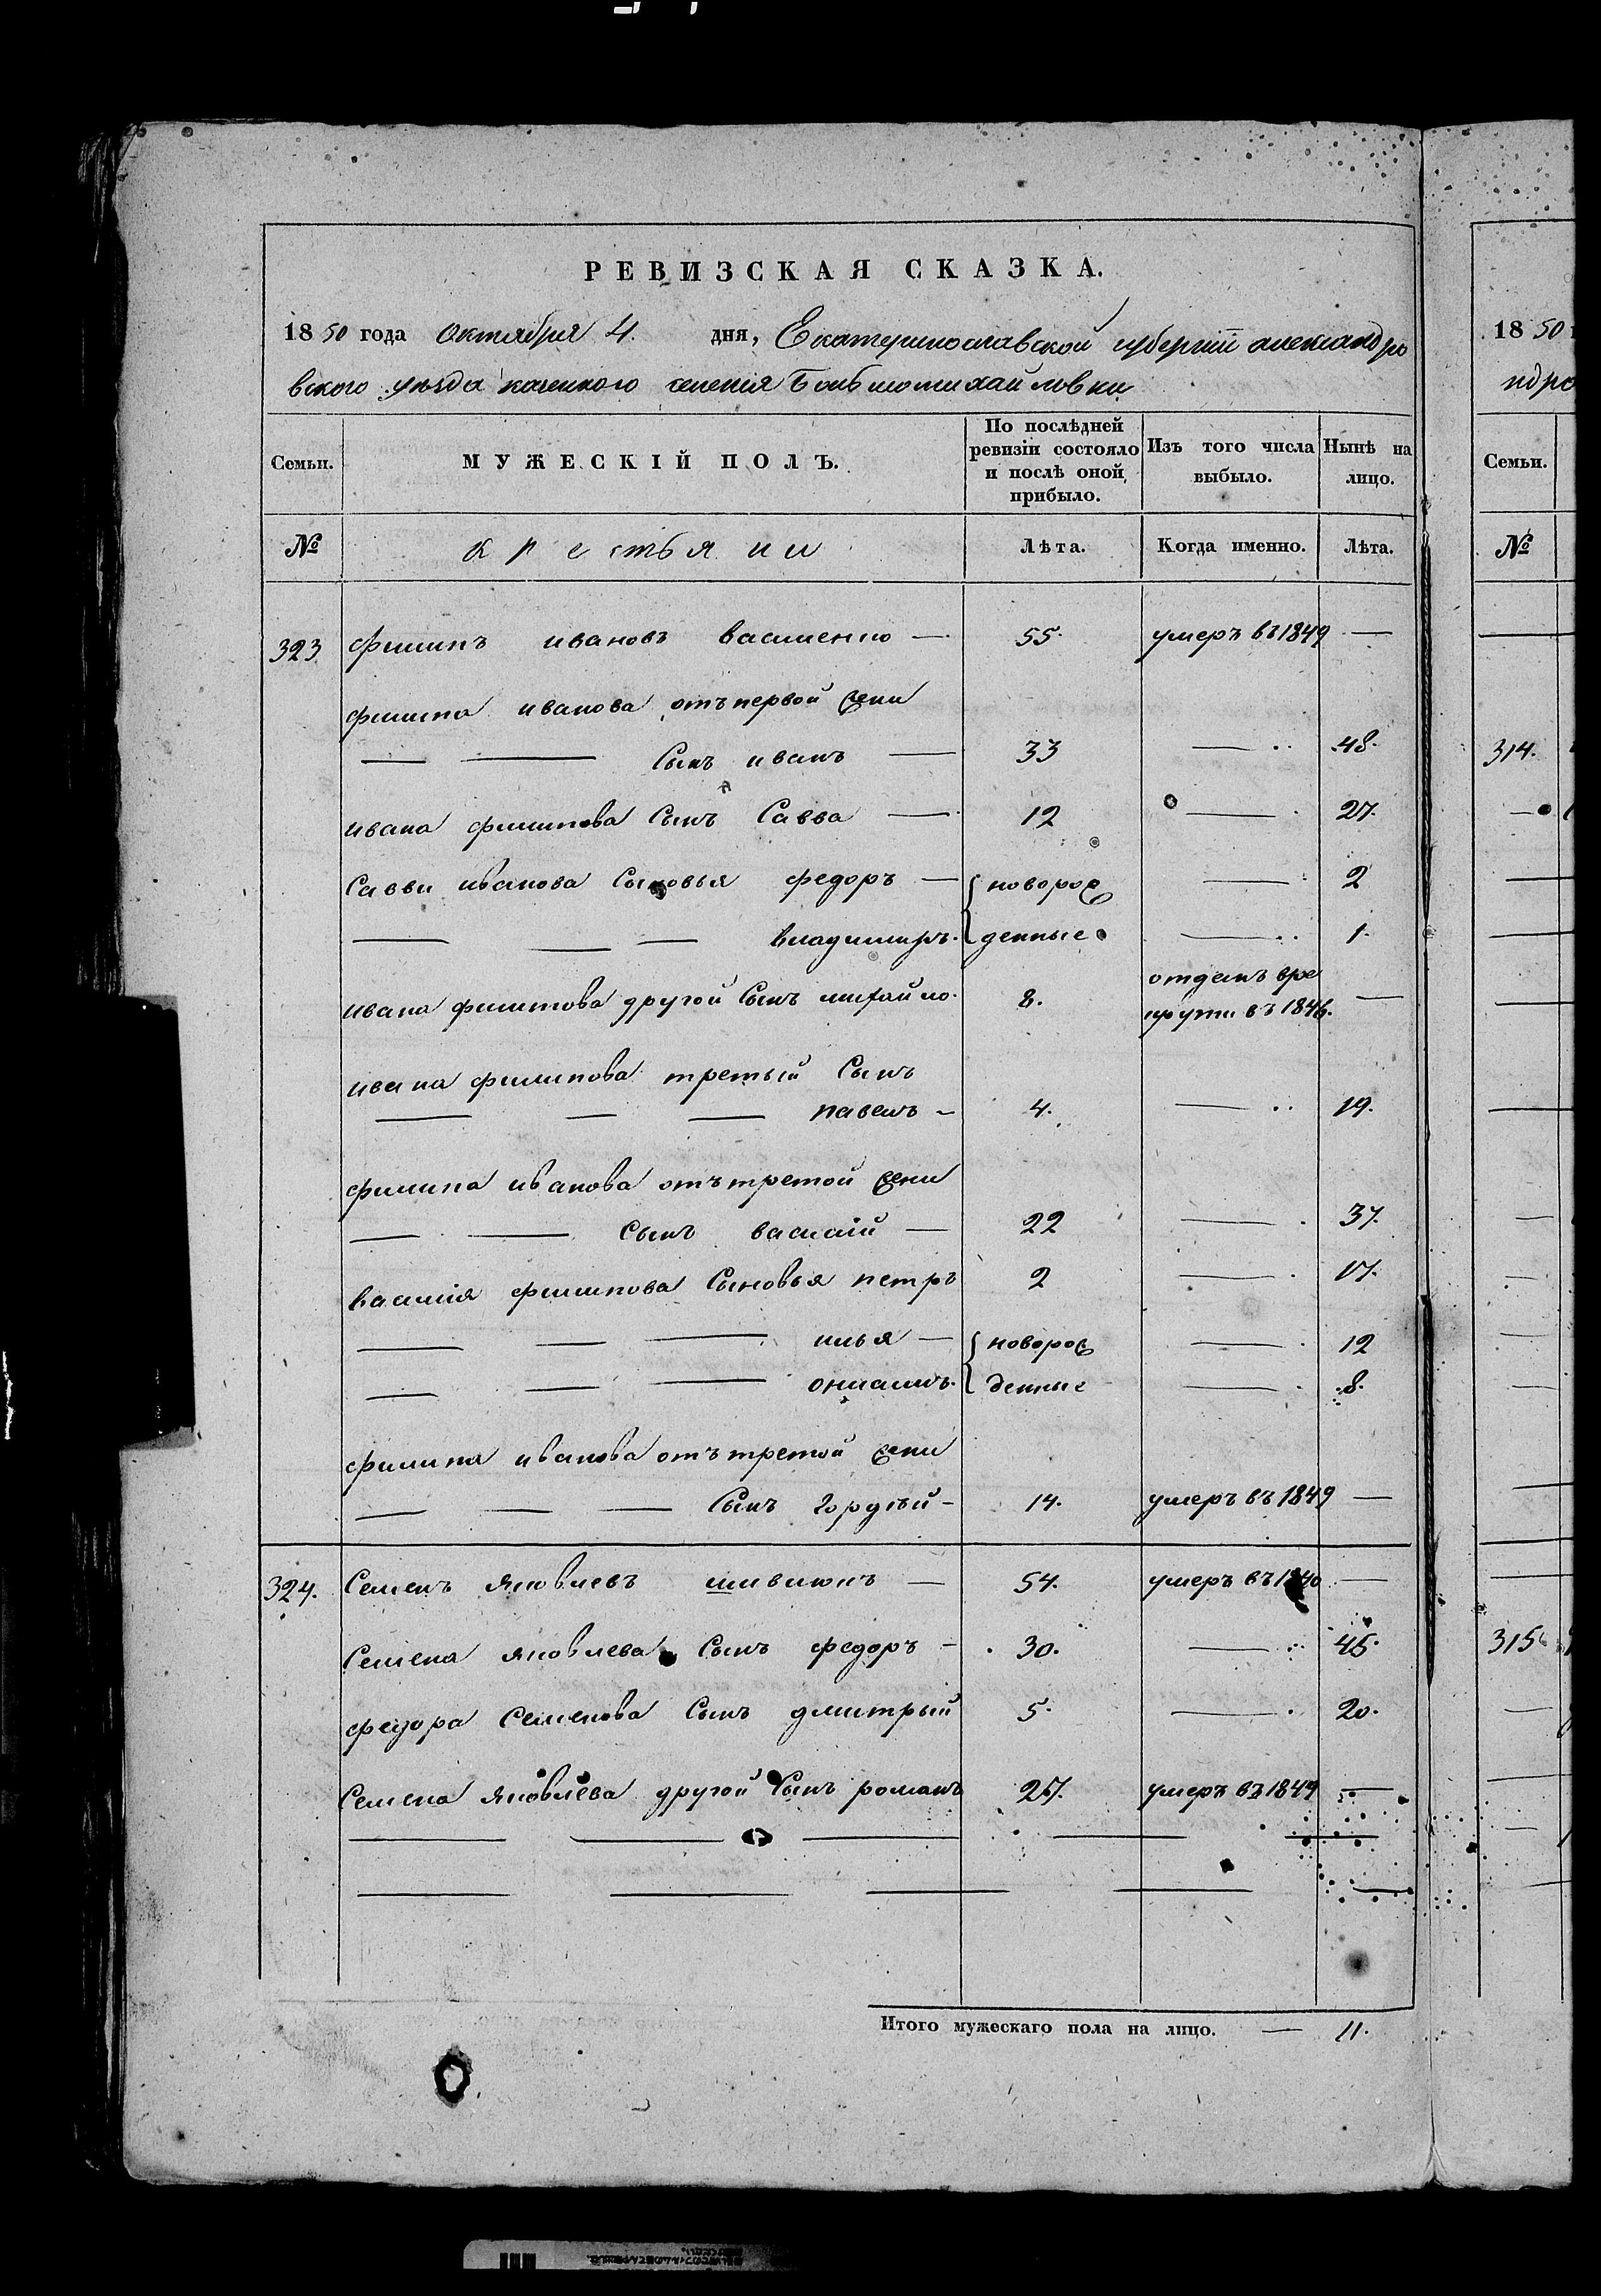 РЕВИЗСКАЯ СКАЗКА.
1850 года октября 4. дня, Екатеринославской губернии александро
вского уезда казенного селения Большомихайловки
Семьи. МУЖЕСКІЙ ПОЛЪ. По послѣдней ревизіи состояло и послѣ оной прибыло. Изъ того числа выбыло. Нынѣ на лицо.
№ крестьяни Лѣта. Когда именно. Лѣта.
323 филипъ ивановъ василенко — 55. умеръ въ 1849 —
филипа иванова отъ первой жени
— — Сынъ иванъ — 33 — 48.
ивана филипова Сынъ Савва — 12 — 27.
Савви иванова Сыновья федоръ — новорож — 2
— — — владимиръ. денные — 1.
ивана филипова другой Сынъ михайло. 8. отданъ врекрути въ 1846. —
ивана филипова третый Сынъ
— — — павелъ - 4. — 19.
филипа иванова отъ третой жени
— — Сынъ василій — 22 — 37.
василія филипова Сыновья петръ 2 — 17.
— — — илья — новорож — 12
— — — онисимъ. денные — 8.
филипа иванова отъ третой жени
— — — Сынъ гордѣй - 14. умеръ въ 1849 —
324. Семенъ яковлевъ шивлюкъ — 54. умеръ въ 1840 —
Семена яковлева Сынъ федоръ - 30. — 45.
федора Семенова Сынъ дмитрый 5. — 20.
Семена яковлева другой Сынъ романъ 27. умеръ въ 1849 —
Итого мужескаго пола на лицо. — 11.
1850
ндро
Семьи.
№
314.
315